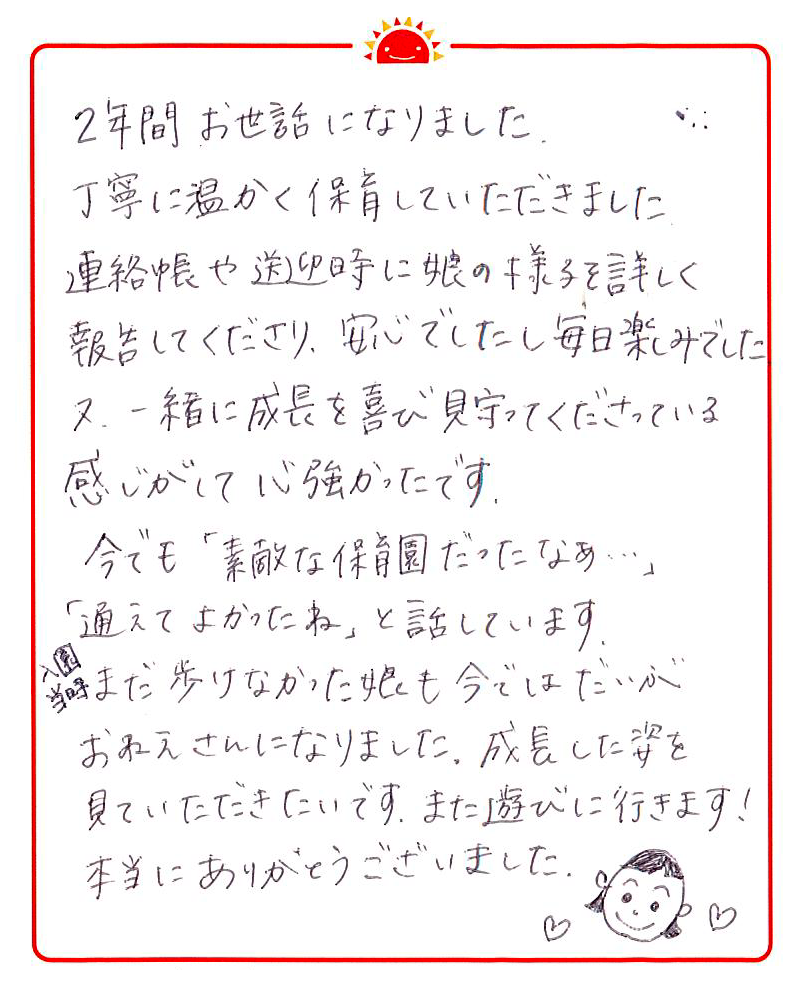 2年間 お世話になりました.
丁寧に温かく保育していただきました
連絡帳や送迎時に娘の様子を詳しく
報告してくださり、安心でしたし毎日楽しみでした
又、一緒に成長を喜び見守ってくださっている
感じがして心強かったです.
今でも「素敵な保育園だったなぁ…」
「通えてよかったね」と話しています.
入園
当時
まだ歩けなかった娘も今ではだいぶ
おねえさんになりました。成長した姿を
見ていただきたいです.また遊びに行きます!
本当にありがとうございました.